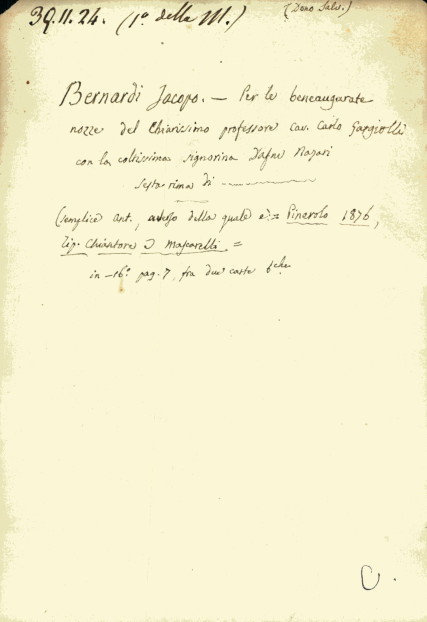 39.11.24. (1º della M.)
(Dono Salv.)
Bernardi Jacopo. — Per le beneaugurate
nozze del Chiarissimo professore cav. Carlo Gargiolli
con la coltissima signorina Dafne Nazari
Sesta rima di
(semplice ant., della quale è: = Pinerolo 1876,
Tip. Chiantore & Mascarelli =
in-16º pag. 7, fra due carte bche
C.